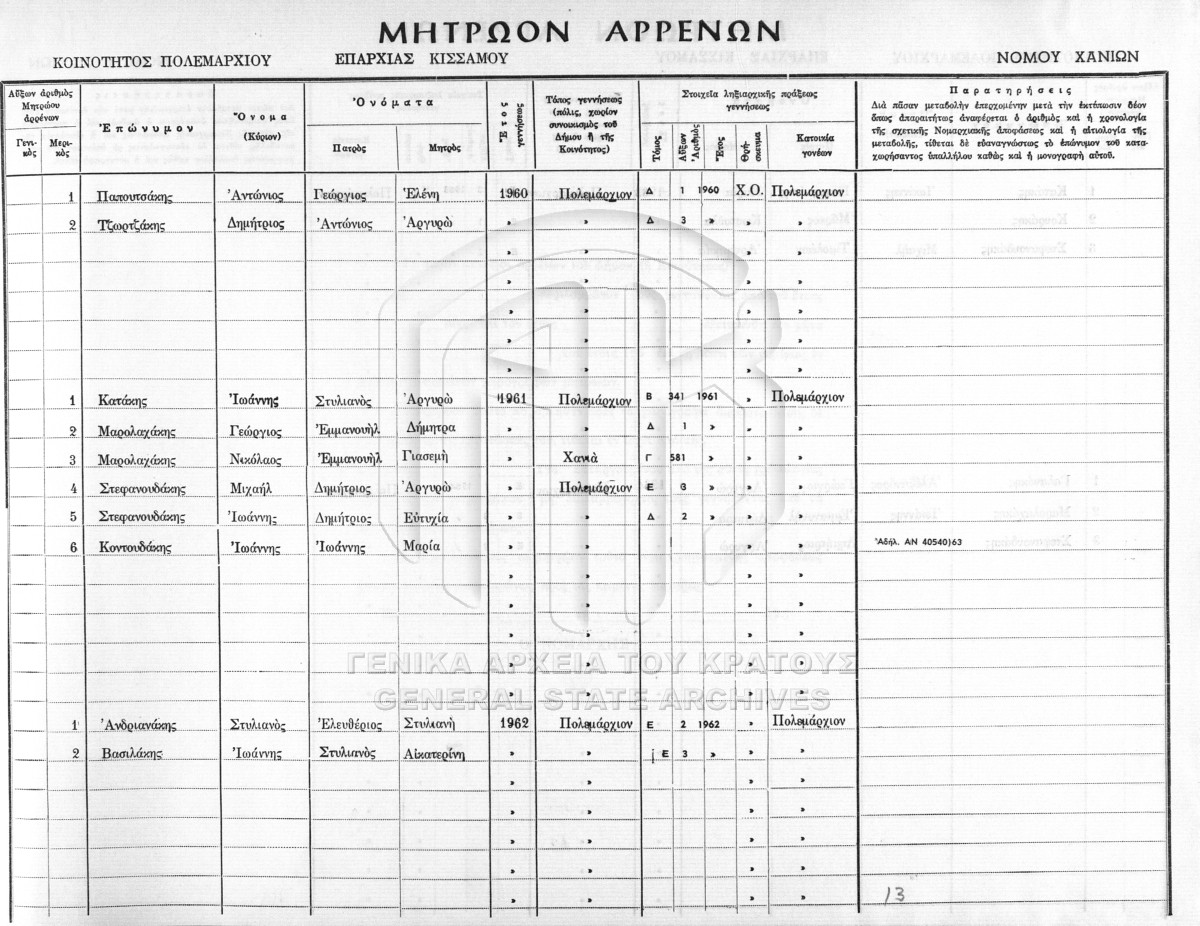 ΜΗΤΡΩΟΝ ΑΡΡΕΝΩΝ
ΚΟΙΝΟΤΗΤΟΣ ΠΟΛΕΜΑΡΧΙΟΥ ΕΠΑΡΧΙΑΣ ΚΙΣΣΑΜΟΥ ΝΟΜΟΥ ΧΑΝΙΩΝ
Αὔξων ἀριθμὸς Μητρώου ἀρρένων
Γενικὸς
Μερικὸς
Ἐπώνυμον
Ὄνομα (Κύριον)
Ὀνόματα
Πατρὸς
Μητρὸς
Ἔτος γεννήσεως
Τόπος γεννήσεως (πόλις, χωρίον συνοικισμὸς τοῦ Δήμου ἢ τῆς Κοινότητος)
Στοιχεῖα ληξιαρχικῆς πράξεως γεννήσεως
Τόμος
Αὔξων Ἀριθμὸς
Ἔτος
Θρήσκευμα
Κατοικία γονέων
Παρατηρήσεις
Διὰ πᾶσαν μεταβολὴν ἐπερχομένην μετὰ τὴν ἐκτύπωσιν δέον
ὅπως ἀπαραιτήτως ἀναφέρεται ὁ ἀριθμὸς καὶ ἡ χρονολογία
τῆς σχετικῆς Νομαρχιακῆς ἀποφάσεως καὶ ἡ αἰτιολογία τῆς
μεταβολῆς, τίθεται δὲ εὐαναγνώστως τὸ ἐπώνυμον τοῦ κατα-
χωρήσαντος ὑπαλλήλου καθὼς καὶ ἡ μονογραφὴ αὐτοῦ.
1 Παπουτσάκης Ἀντώνιος Γεώργιος Ἑλένη 1960 Πολεμάρχιον Δ 1 1960 Χ.Ο. Πολεμάρχιον
2 Τζωρτζάκης Δημήτριος Ἀντώνιος Ἀργυρὼ » » Δ 3 » » »
» » » »
» » » »
» » » »
» » » »
» » » »
1 Κατάκης Ἰωάννης Στυλιανὸς Ἀργυρὼ 1961 Πολεμάρχιον Β 341 1961 » Πολεμάρχιον
2 Μαρολαχάκης Γεώργιος Ἐμμανουὴλ Δήμητρα » » Δ 1 » » »
3 Μαρολαχάκης Νικόλαος Ἐμμανουὴλ Γιασεμὴ » Χανιὰ Γ 581 » » »
4 Στεφανουδάκης Μιχαὴλ Δημήτριος Ἀργυρὼ » Πολεμάρχιον Ε 3 » » »
5 Στεφανουδάκης Ἰωάννης Δημήτριος Εὐτυχία » » Δ 2 » » »
6 Κοντουδάκης Ἰωάννης Ἰωάννης Μαρία » » » » Ἀδήλ. ΑΝ 40540)63
» » » »
» » » »
» » » »
» » » »
» » » »
ΓΕΝΙΚΑ ΑΡΧΕΙΑ ΤΟΥ ΚΡΑΤΟΥΣ
GENERAL STATE ARCHIVES
1 Ἀνδριανάκης Στυλιανὸς Ἐλευθέριος Στυλιανὴ 1962 Πολεμάρχιον Ε 2 1962 » Πολεμάρχιον
2 Βασιλάκης Ἰωάννης Στυλιανὸς Αἰκατερίνη » » Ε 3 » » »
» » » »
» » » »
» » » »
» » » »
» » » »
13